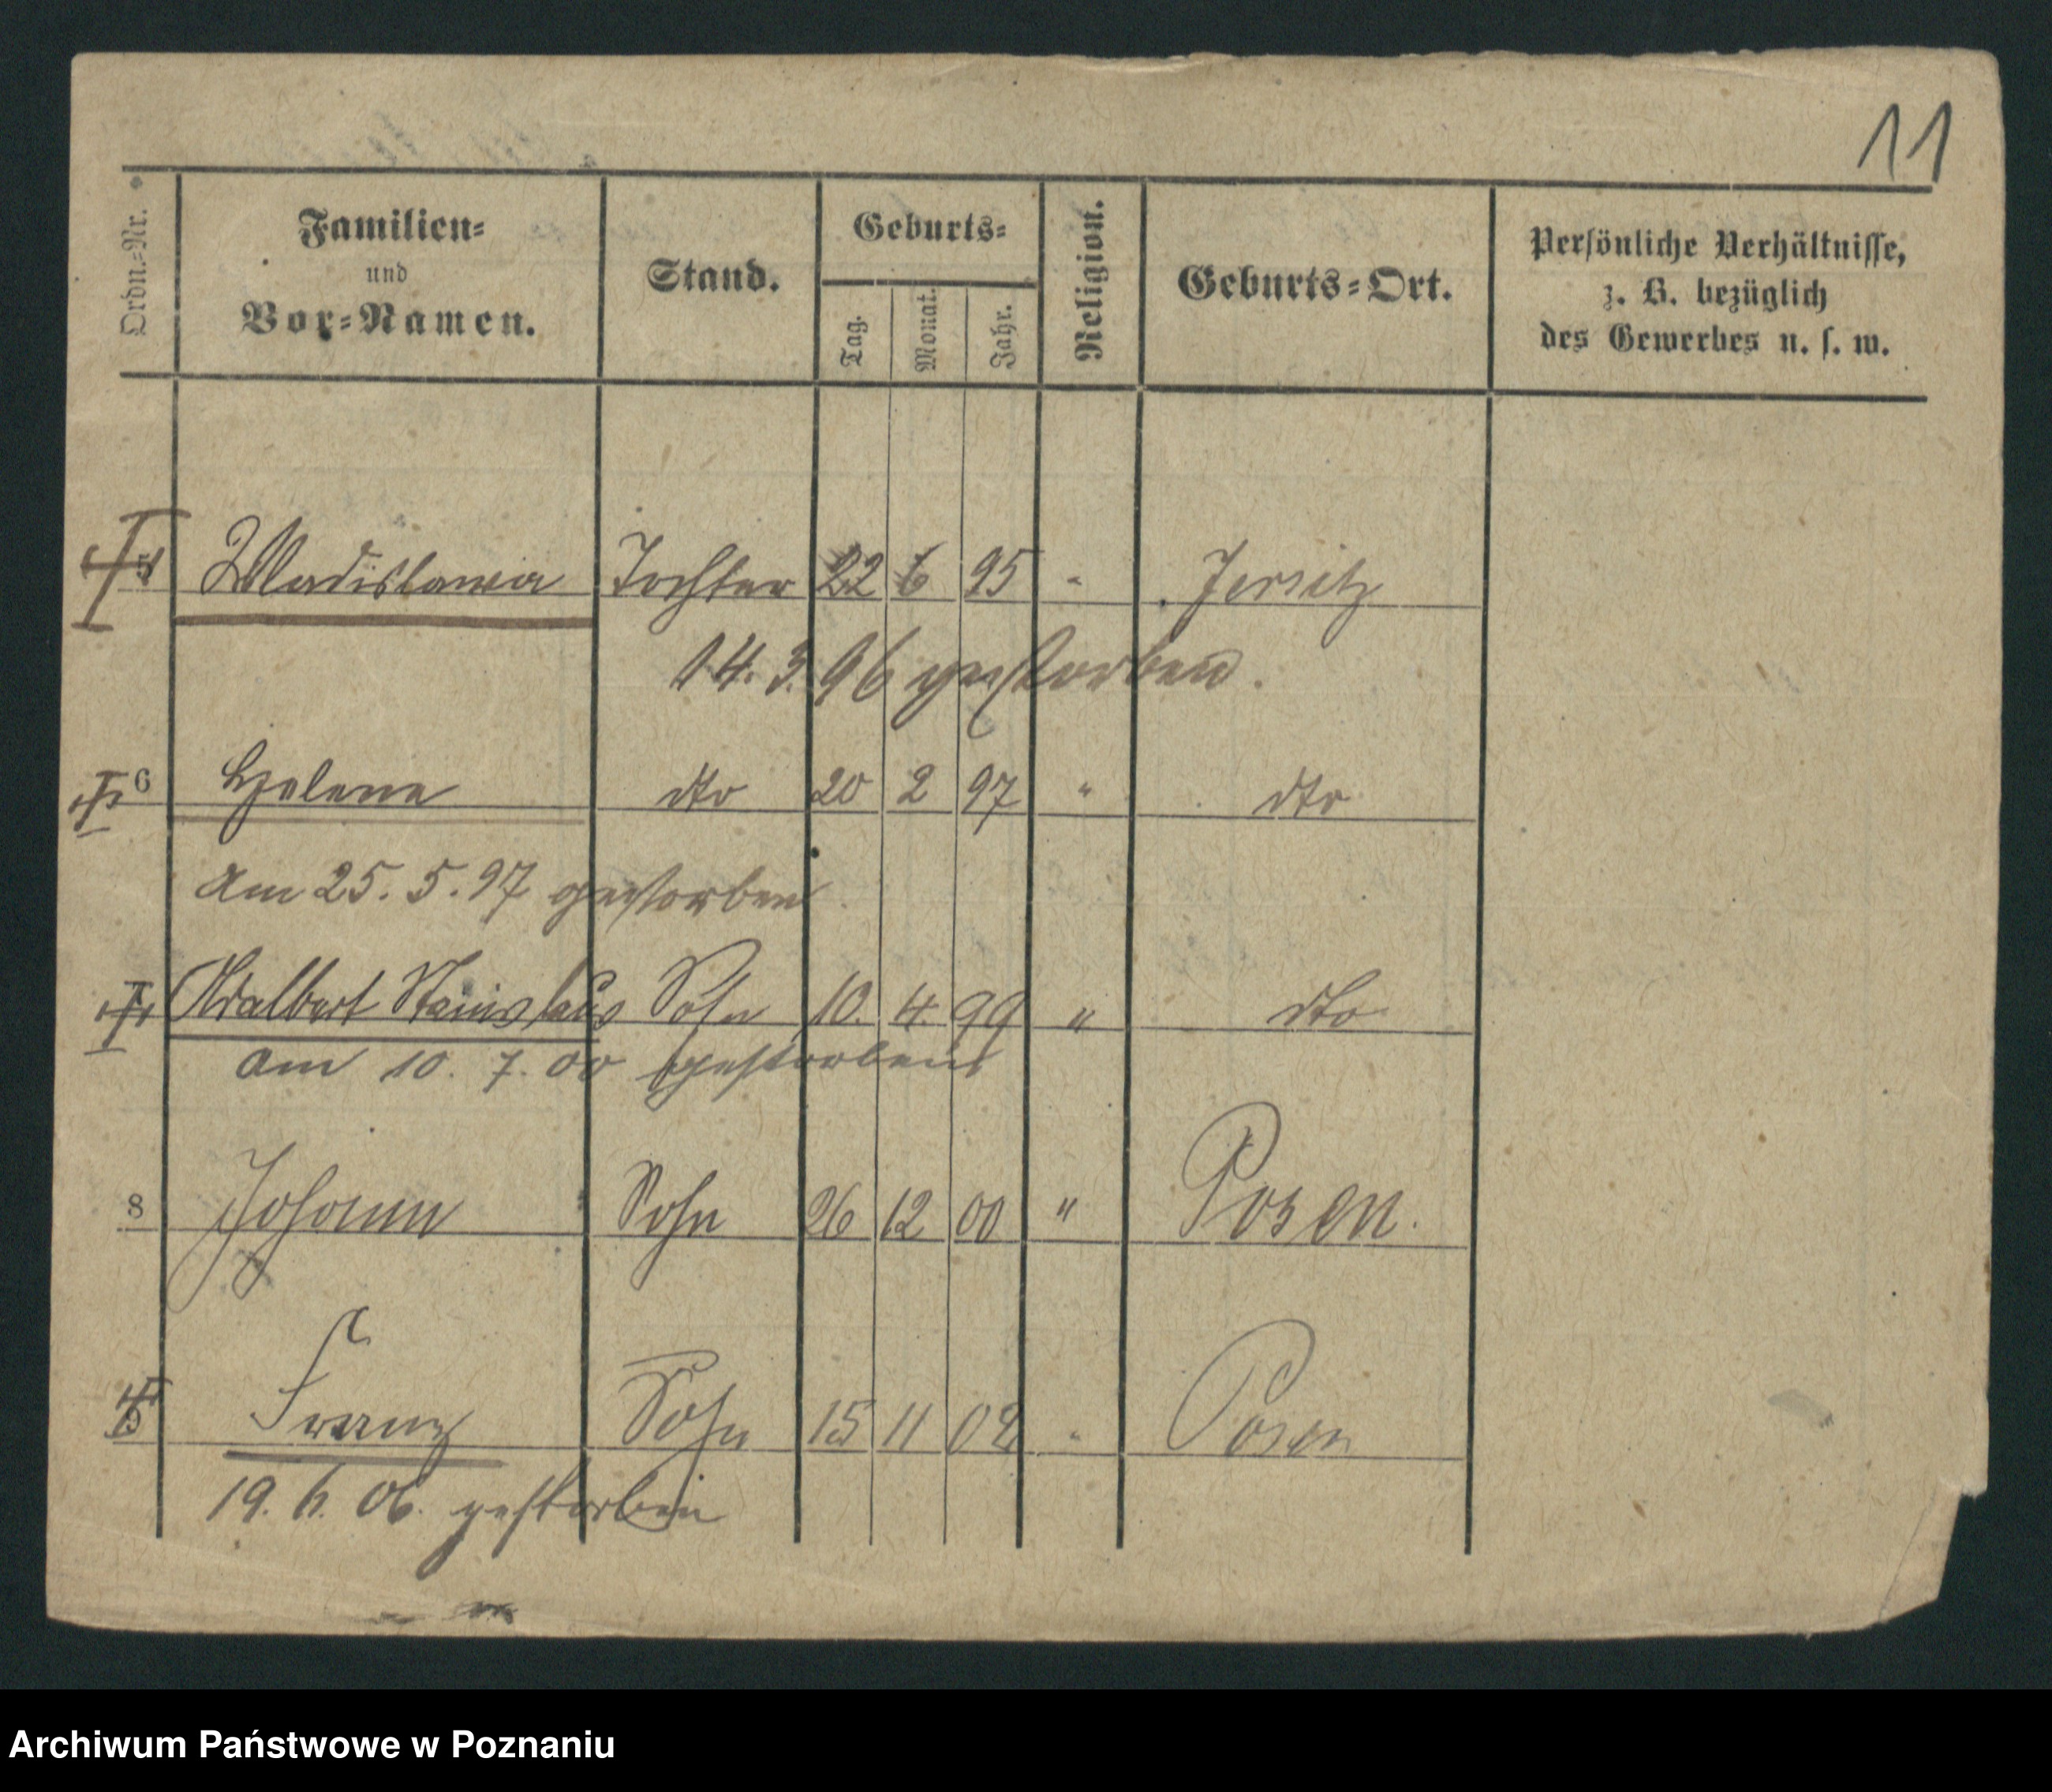 11
Ordn.-Nr.
Familien-
und
Vor-Namen.
Stand.
Geburts-
Tag.
Monat.
Jahr.
Religion.
Geburts-Ort.
Persönliche Verhältnisse,
z. B. bezüglich
des Gewerbes u. s. w.
5 Wladislawa Tochter 22 6 95 " Jersitz
14. 3. 96 gestorben.
6 Helene dto 20 2 97 " dto
am 25. 5. 97 gestorben.
Adalbert Stanislaus Sohn 10. 4. 99 " dto
am 10. 7. 00 gestorben
8 Johann Sohn 26 12 00 " Posen.
9 Franz Sohn 15 11 02 " Posen
19. 6. 06. gestorben
Archiwum Państwowe w Poznaniu